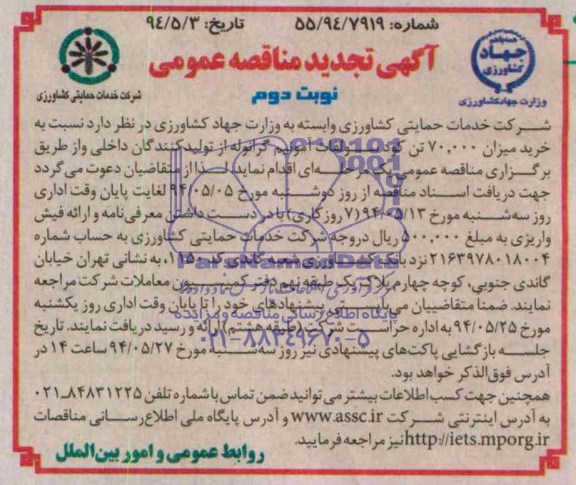 شماره: ۵۵/۹۴/۷۹۱۹
تاریخ: ۹۴/۵/۳
جهاد کشاورزی
وزارت جهاد کشاورزی
شرکت خدمات حمایتی کشاورزی
آگهی تجدید مناقصه عمومی
نوبت دوم
شرکت خدمات حمایتی کشاورزی وابسته به وزارت جهاد کشاورزی در نظر دارد نسبت به
خرید میزان ۷۰,۰۰۰ تن کود سولفات آمونیم گرانوله از تولیدکنندگان داخلی و از طریق
برگزاری مناقصه عمومی یک مرحله‌ای اقدام نماید، لذا از متقاضیان دعوت می‌گردد
جهت دریافت اسناد مناقصه از روز دوشنبه مورخ ۹۴/۰۵/۰۵ لغایت پایان وقت اداری
روز سه‌شنبه مورخ ۹۴/۰۵/۱۳ (۷ روز کاری) با در دست داشتن معرفی‌نامه و ارائه فیش
واریزی به مبلغ ۵۰۰,۰۰۰ ریال در وجه شرکت خدمات حمایتی کشاورزی به حساب شماره
۲۱۶۳۹۷۸۰۱۸۰۰۴ نزد بانک کشاورزی شعبه گاندی کد ۱۱۵۰، به نشانی تهران خیابان
گاندی جنوبی، کوچه چهارم پلاک یک طبقه نهم دفتر کمیسیون معاملات شرکت مراجعه
نمایند. ضمنا متقاضییان می‌بایستی پیشنهادهای خود را تا پایان وقت اداری روز یکشنبه
مورخ ۹۴/۰۵/۲۵ به اداره حراست شرکت (طبقه هشتم) ارائه و رسید دریافت نمایند. تاریخ
جلسه بازگشایی پاکت‌های پیشنهادی نیز روز سه‌شنبه مورخ ۹۴/۰۵/۲۷ ساعت ۱۴ در
آدرس فوق‌الذکر خواهد بود.
همچنین جهت کسب اطلاعات بیشتر می‌توانید ضمن تماس با شماره تلفن ۸۴۸۳۱۲۲۵-۰۲۱
به آدرس اینترنتی شرکت www.assc.ir و آدرس پایگاه ملی اطلاع‌رسانی مناقصات
http://iets.mporg.ir نیز مراجعه فرمایید.
روابط عمومی و امور بین‌الملل
ParsNamadData
پایگاه اطلاع رسانی مناقصه و مزایده
۰۲۱-۸۸۳۴۹۶۷۰-۵